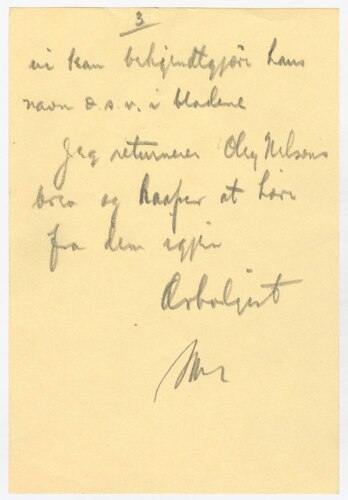 3
vi kan bekjendtgjöre hans
navn o.s.v. i bladene
Jeg returnerer Oley Nelsons
brev og haaper at höre
fra dem igjen
Ærbødigst